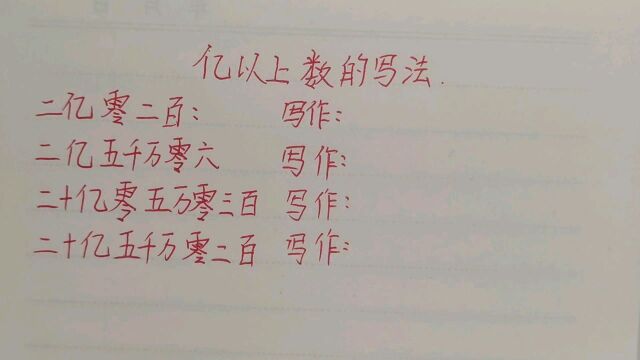 亿以上数的写法.
二亿零二百： 写作：
二亿五千万零六 写作：
二十亿零五万零三百 写作：
二十亿五千万零二百 写作：